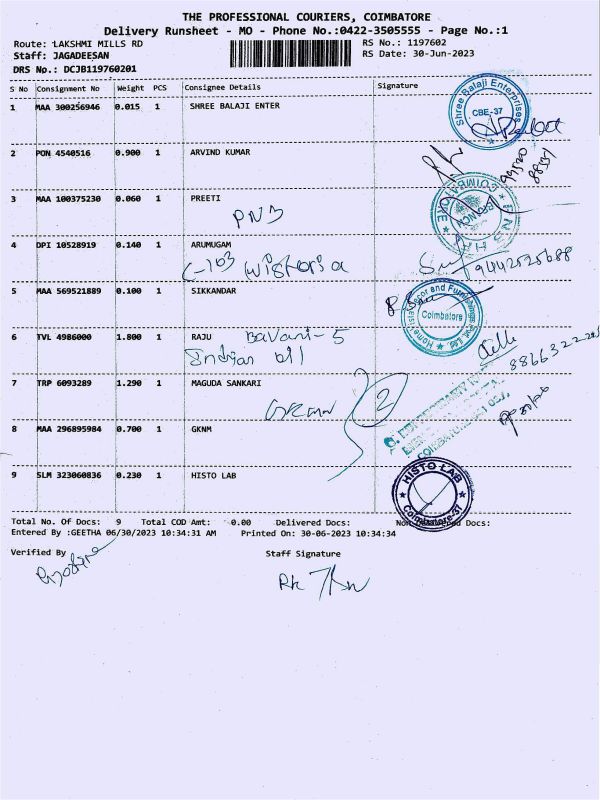 THE PROFESSIONAL COURIERS, COIMBATORE
Delivery Runsheet - MO - Phone No.:0422-3505555 - Page No.:1
Route: LAKSHMI MILLS RD RS No.: 1197602
Staff: JAGADEESAN RS Date: 30-Jun-2023
DRS No.: DCJB119760201
S No Consignment No Weight PCS Consignee Details Signature
1 MAA 300256946 0.015 1 SHREE BALAJI ENTER
Shree Balaji Enterprises
CBE-37
2 PON 4540516 0.900 1 ARVIND KUMAR
3 MAA 100375230 0.060 1 PREETI
PNB
COIMBATORE
4 DPI 10528919 0.140 1 ARUMUGAM
C-103 Wisteria 9442525688
5 MAA 569521889 0.100 1 SIKKANDAR
Coimbatore
6 TVL 4986000 1.800 1 RAJU Bavani-5
Indian oil
7 TRP 6093289 1.290 1 MAGUDA SANKARI
2
8 MAA 296895984 0.700 1 GKNM
9 SLM 323060836 0.230 1 HISTO LAB
HISTO LAB
Coimbatore-37
Total No. Of Docs: 9 Total COD Amt: 0.00 Delivered Docs: Docs:
Entered By :GEETHA 06/30/2023 10:34:31 AM Printed On: 30-06-2023 10:34:34
Verified By Staff Signature